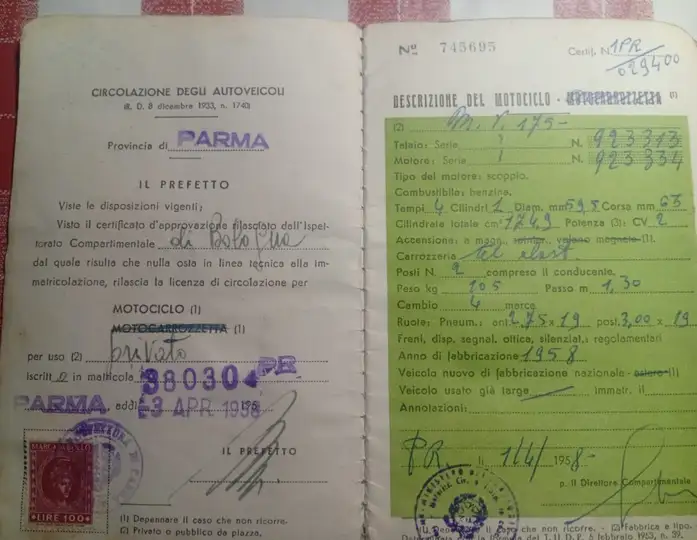 CIRCOLAZIONE DEGLI AUTOVEICOLI
(R. D. 8 dicembre 1933, n. 1740)
Provincia di PARMA
IL PREFETTO
Viste le disposizioni vigenti;
Visto il certificato d'approvazione rilasciato dall'Ispet-
torato Compartimentale di Bologna
dal quale risulta che nulla osta in linea tecnica alla im-
matricolazione, rilascia la licenza di circolazione per
MOTOCICLO (1)
MOTOCARROZZETTA (1)
per uso (2) privato
iscritt o in matricola 38030 PR
PARMA, addì 3 APR. 1958 195
IL PREFETTO
MARCA DA BOLLO
LIRE 100
(1) Depennare il caso che non ricorre.
(2) Privato o pubblico da piazza.
Nº 745695
Certif. N. 1PR/029400
DESCRIZIONE DEL MOTOCICLO - MOTOCARROZZETTA (1)
(2) M. V. 175-
Telaio: Serie N. 923313
Motore: Serie N. 923334
Tipo del motore: scoppio.
Combustibile: benzina.
Tempi 4 Cilindri 1 Diam. mm 59,5 Corsa mm 63
Cilindrata totale cm³ 174,9 Potenza (3): CV 2
Accensione: a magn. spinter. volano magnete (1).
Carrozzeria tel. elast.
Posti N. 2 compreso il conducente.
Peso kg 105 Passo m 1,30
Cambio 4 marce
Ruote: Pneum.: ant. 2.75 x 19 post. 3,00 x 19
Freni, disp. segnal. ottica, silenziat.: regolamentari
Anno di fabbricazione 1958
Veicolo nuovo di fabbricazione nazionale - estera (1)
Veicolo usato già targa immatr. il
Annotazioni:
PR. li 1/4/ 1958-
p. Il Direttore Compartimentale
(1) Depennare il caso che non ricorre. - (2) Fabbrica e tipo.
5 febbraio 1953, n. 39.